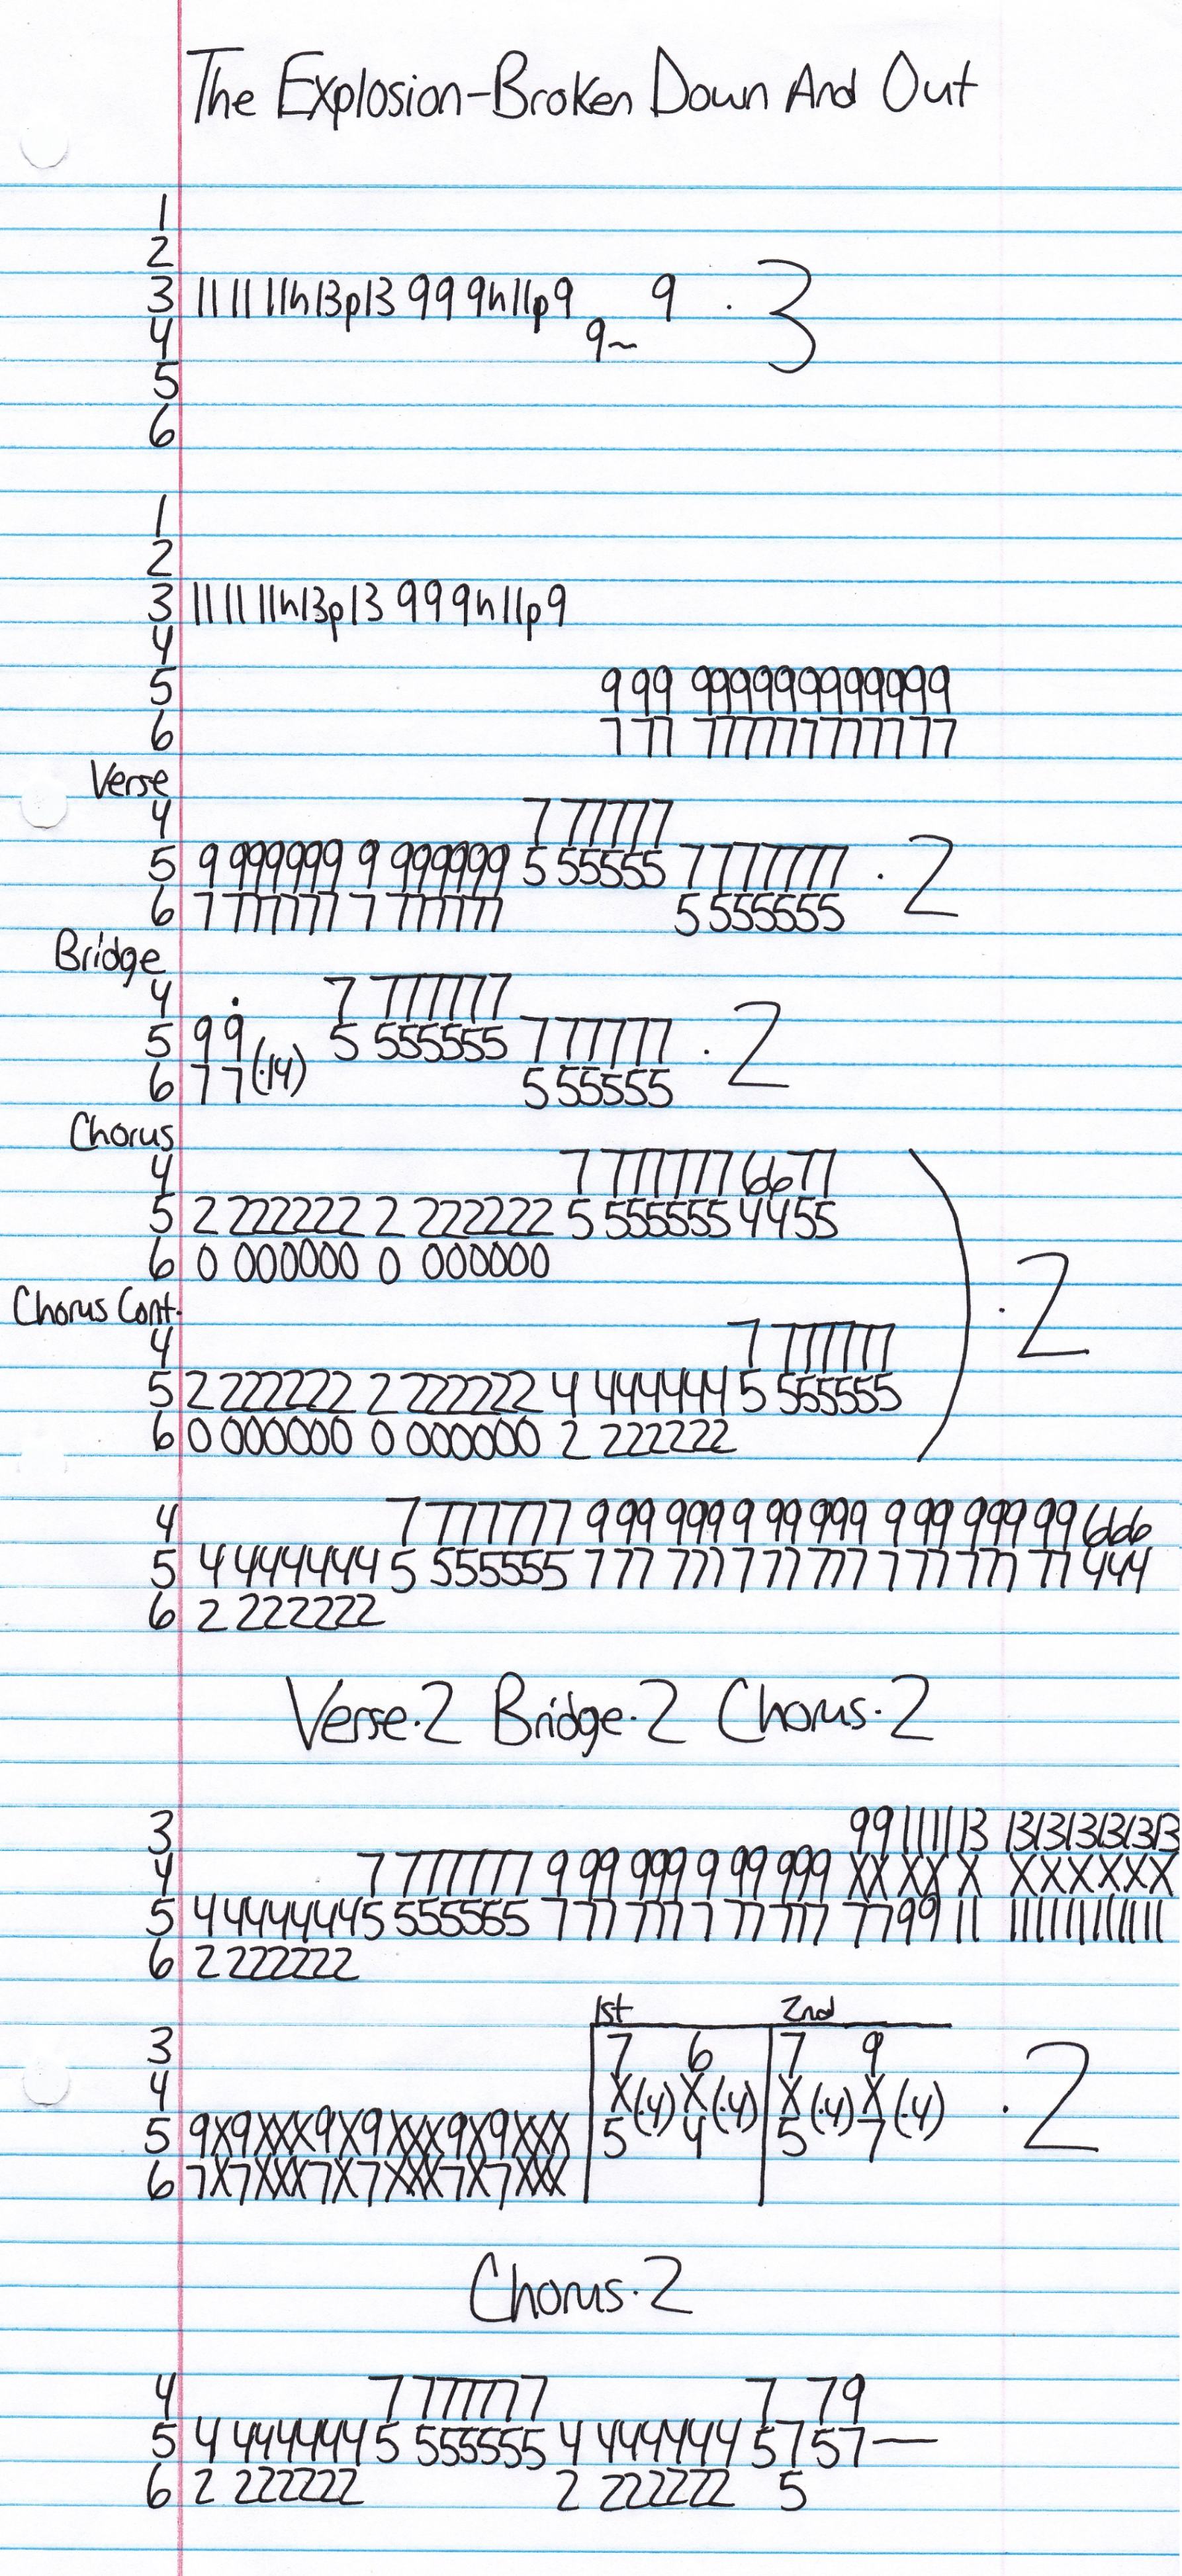 The Explosion-Broken Down And Out
1
2
3 11 11 11h13p13 99 9 9h11p9 9 · 3
4 9~
5
6
1
2
3 11 11 11h13p13 99 9 9h11p9
4
5 9 99 999999999999
6 7 77 777777777777
Verse
4 7 77777
5 9 999999 9 999999 5 55555 7 777777 · 2
6 7 777777 7 777777 5 555555
Bridge
4 7 777777
5 9 9̇ 5 555555 7 77777 · 2
6 7 7 (·14) 5 55555
Chorus
4 7 777777 6677
5 2 222222 2 222222 5 555555 4455
6 0 000000 0 000000
) · 2
Chorus Cont.
4 7 777777
5 2 222222 2 222222 4 444444 5 555555
6 0 000000 0 000000 2 222222
4 7 777777 9 99 999 9 99 999 9 99 999 99 666
5 4 444444 5 555555 7 77 777 7 77 777 7 77 777 77 444
6 2 222222
Verse·2 Bridge·2 Chorus·2
3 99 1111 13 131313131313
4 7 777777 9 99 999 9 99 999 XX XX X XXXXXX
5 4 444444 5 555555 7 77 777 7 77 777 7799 11 111111111111
6 2 222222
1st 2nd
3 7 6 7 9
4 X(·4) X(·4) X(·4) X(·4) · 2
5 9X9XXX9X9XXX9X9XXX 5 4 5 7
6 7X7XXX7X7XXX7X7XXX
Chorus·2
4 7 777777 7 79
5 4 444444 5 555555 4 444444 57 57—
6 2 222222 2 222222 5